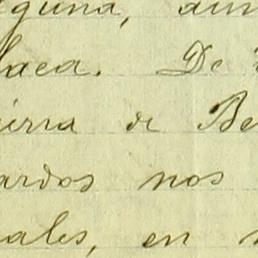 guna, aun
laca. De
ierra de Be
ardos nos
ales, en